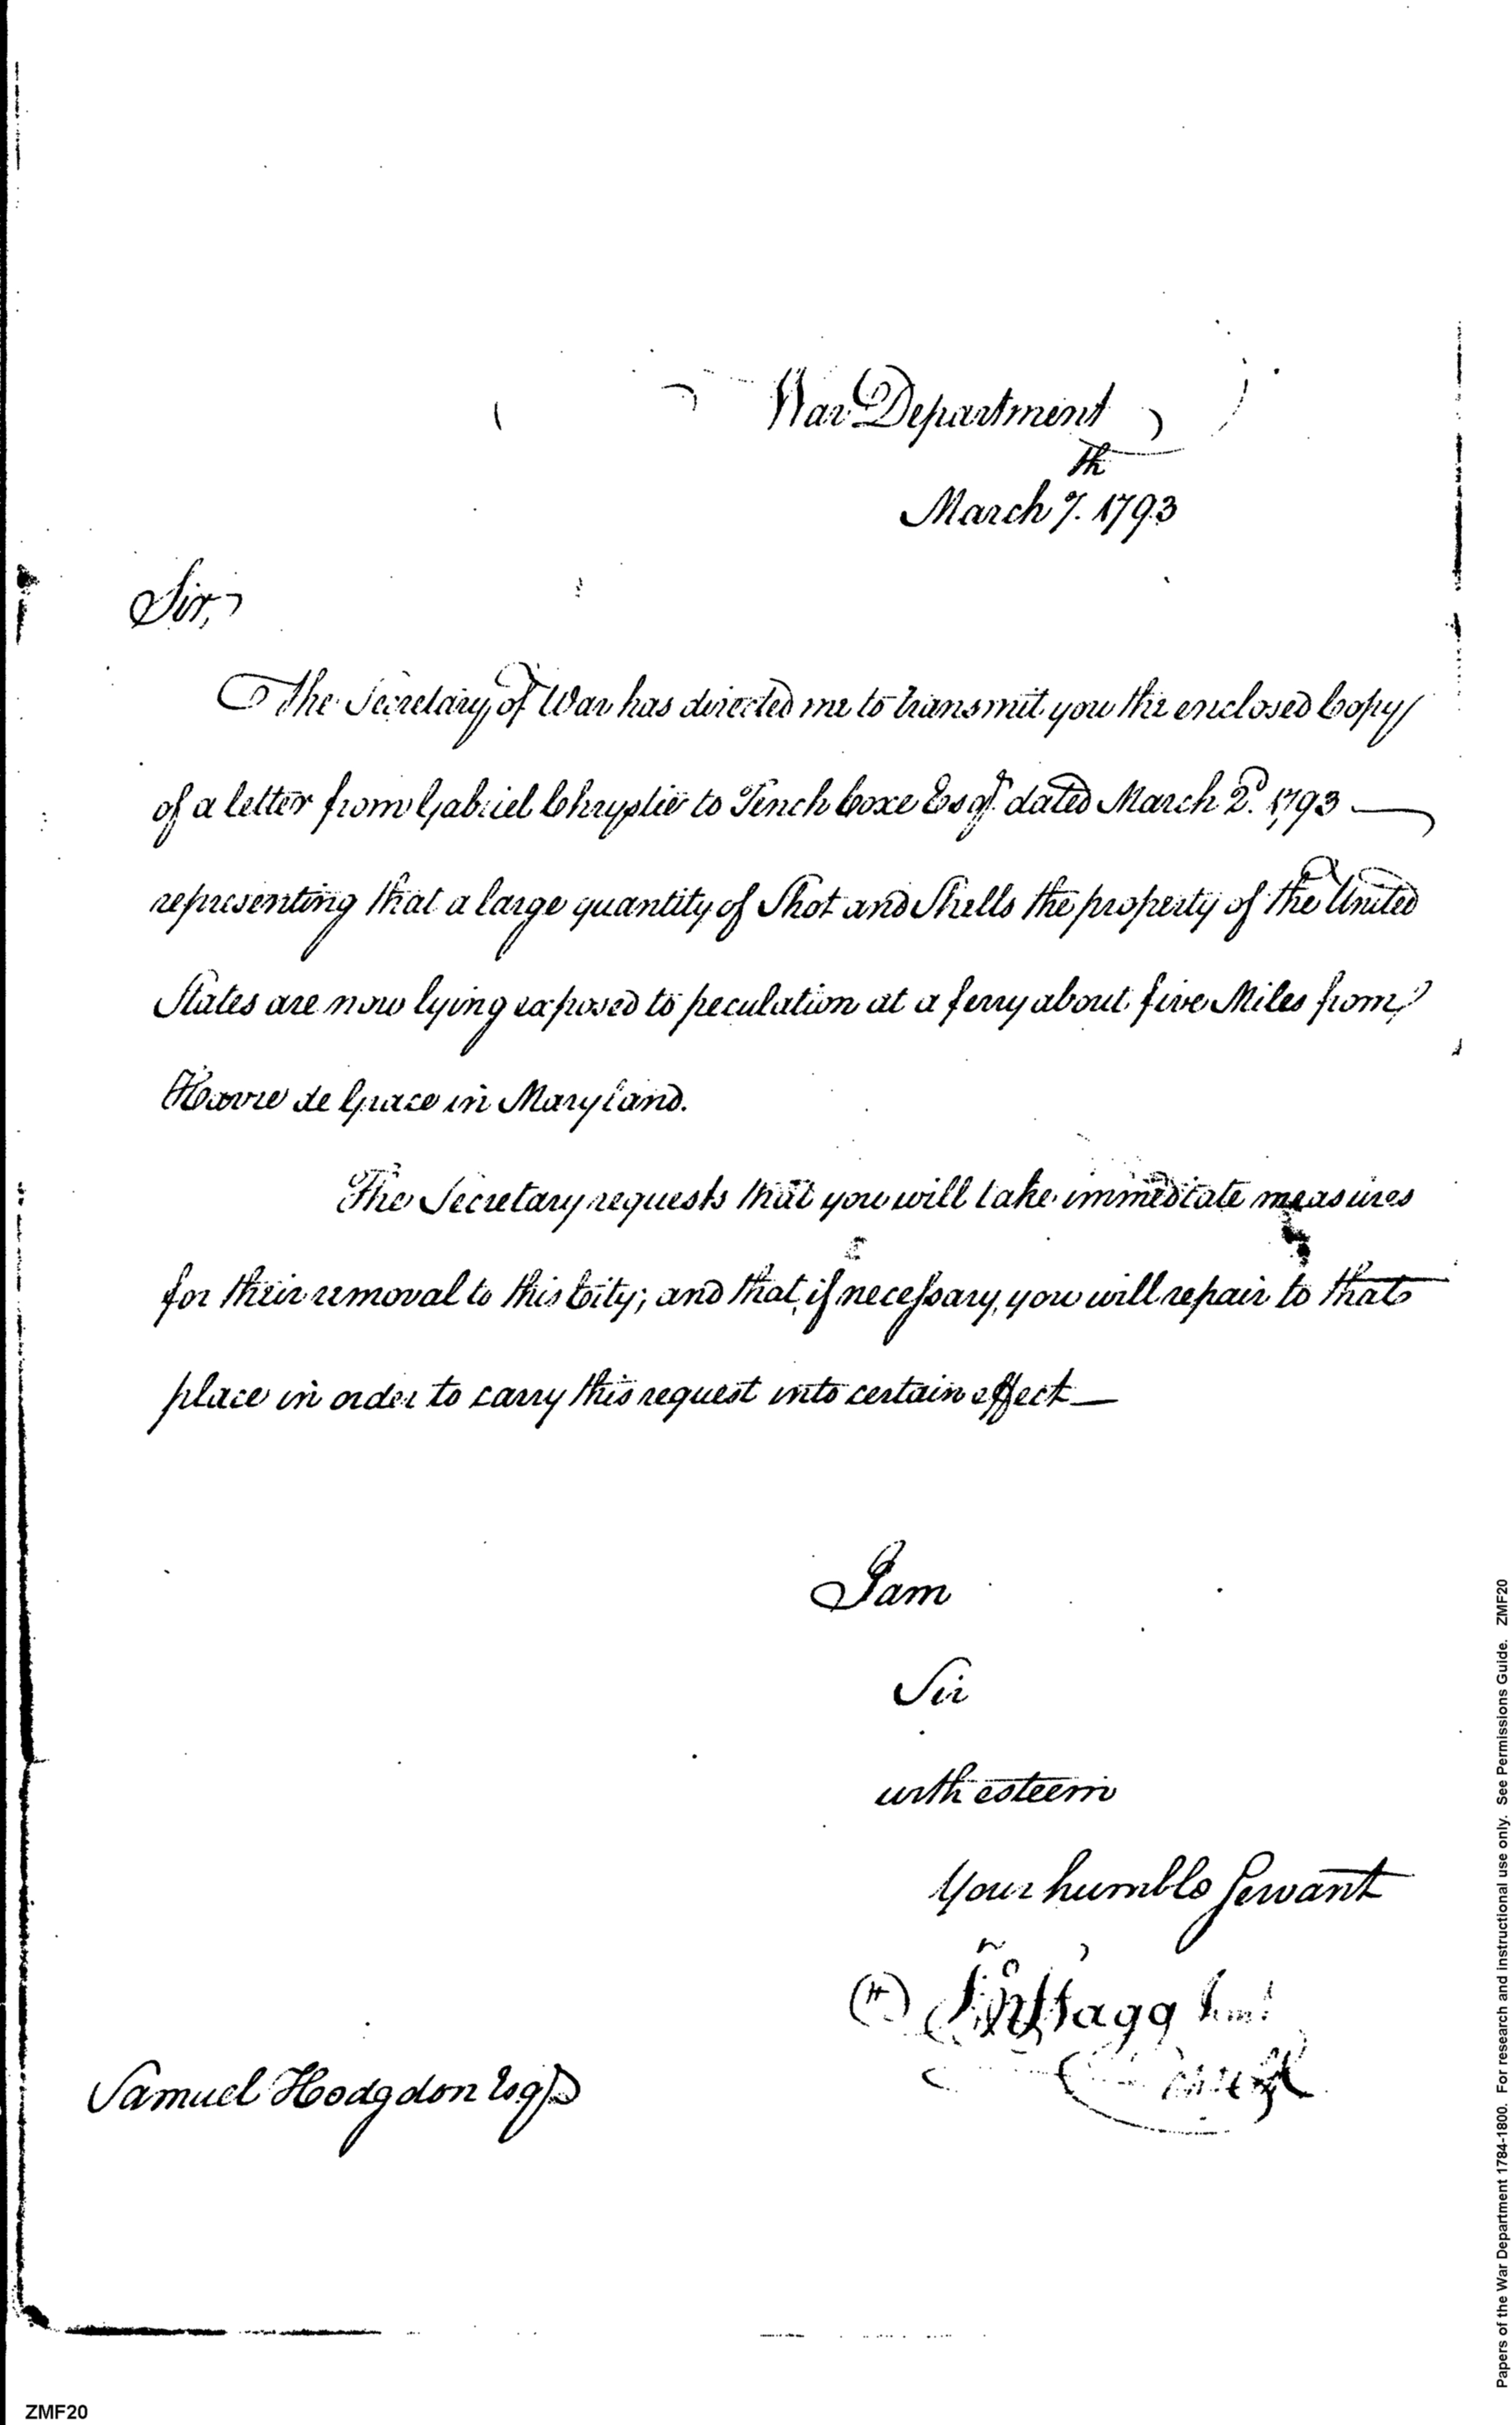 War Department
th
March 7. 1793
Sir,
The Secretary of War has directed me to transmit you the enclosed Copy
of a letter from Gabriel Chrystie to Tench Coxe Esqr. dated March 2d. 1793
representing that a large quantity of Shot and Shells the property of the United
States are now lying exposed to peculation at a ferry about five Miles from
Havre de Grace in Maryland.
The Secretary requests that you will take immediate measures
for their removal to this City; and that, if necessary, you will repair to that
place in order to carry this request into certain effect—
I am
Sir
with esteem
Your humble Servant
Jno Stagg
Samuel Hodgdon Esqr
Papers of the War Department 1784-1800. For research and instructional use only. See Permissions Guide. ZMF20
ZMF20